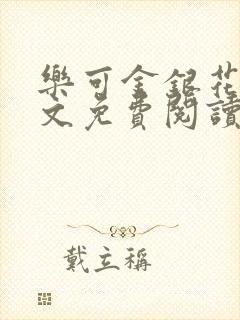 樂可金銀花
文免費閱讀
戴立稱